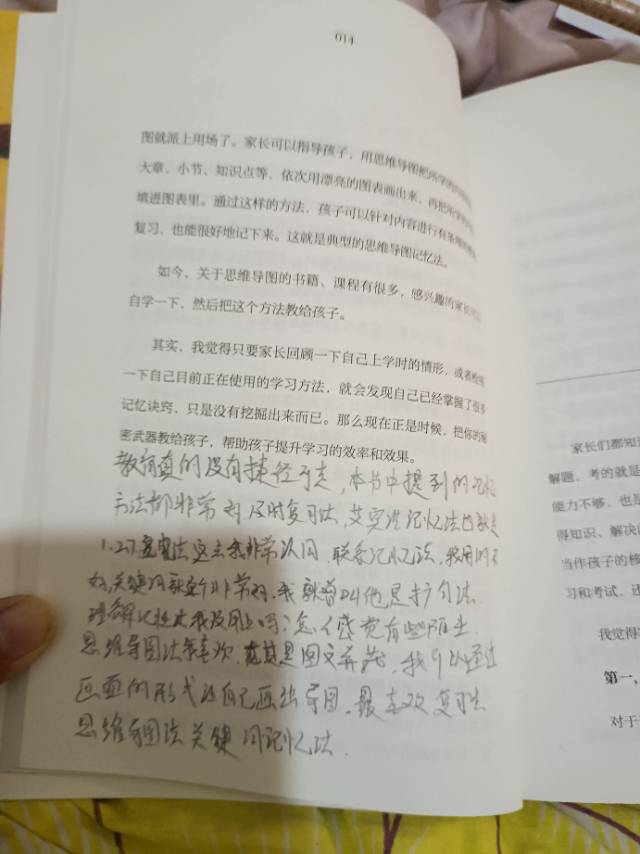 014
图就派上用场了。家长可以指导孩子，用思维导图把所学的
大章、小节、知识点等，依次用漂亮的图表画出来，再把所学的
填进图表里。通过这样的方法，孩子可以针对内容进行有条理的
复习，也能很好地记下来。这就是典型的思维导图记忆法。
如今，关于思维导图的书籍、课程有很多，感兴趣的家长
自学一下，然后把这个方法教给孩子。
其实，我觉得只要家长回顾一下自己上学时的情形，或者
一下自己目前正在使用的学习方法，就会发现自己已经掌握了很多
记忆诀窍，只是没有挖掘出来而已。那么现在正是时候，把你的秘
密武器教给孩子，帮助孩子提升学习的效率和效果。
教育真的没有捷径可走，本书中提到的记忆
方法都非常好，及时复习法，艾宾浩记忆法的
1.2.7 法这点我非常认同，联系记忆法，我用的不
多，关键词 非常好，我 叫他是扩句法
理解记忆法我没用上吗？怎么感觉有些陌生
思维导图法我喜欢，尤其是图文并茂，我可以通过
画画的形式让自己画出导图，最喜欢复习法
思维导图法关键词记忆法.
家长们都知
解题，考的就是
能力不够，也是
得知识、解决问
当作孩子的核
习和考试，还
我觉得
第一，
对于